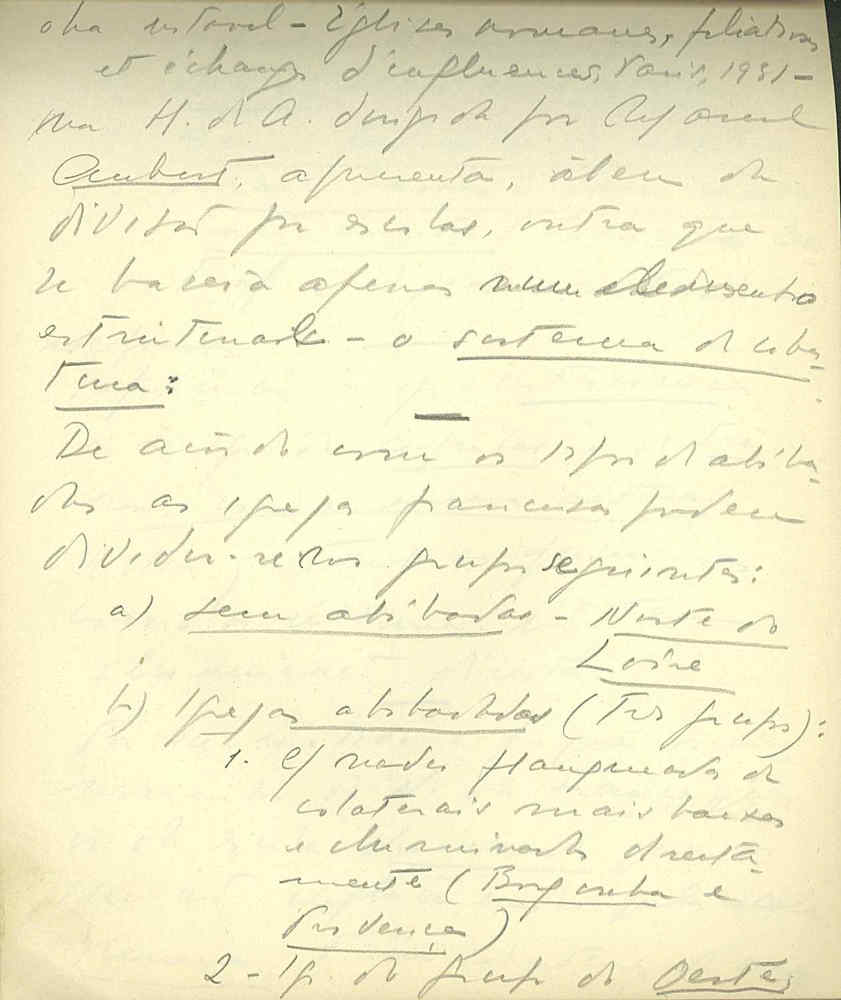 obra notável - Églises romanes, filiations
et échanges d'influences, Paris, 1931 -
na H. d'A. dirigida por
Aubert, apresenta, àlem da
divisão por escolas, outra que
se baseia apenas num elemento
estrutural - o sistema de cober-
tura:
De acôrdo com os tipos de abóba-
das as igrejas francesas podem
dividir-se nos grupos seguintes:
a) sem abóbadas - Norte do
Loire
b) Igrejas abobadadas (Três grupos):
1. c/ nades flanqueadas de
colaterais mais baixos
e iluminada directa-
mente (Borgonha e
Provença)
2 - Ig. do grupo do Oeste;